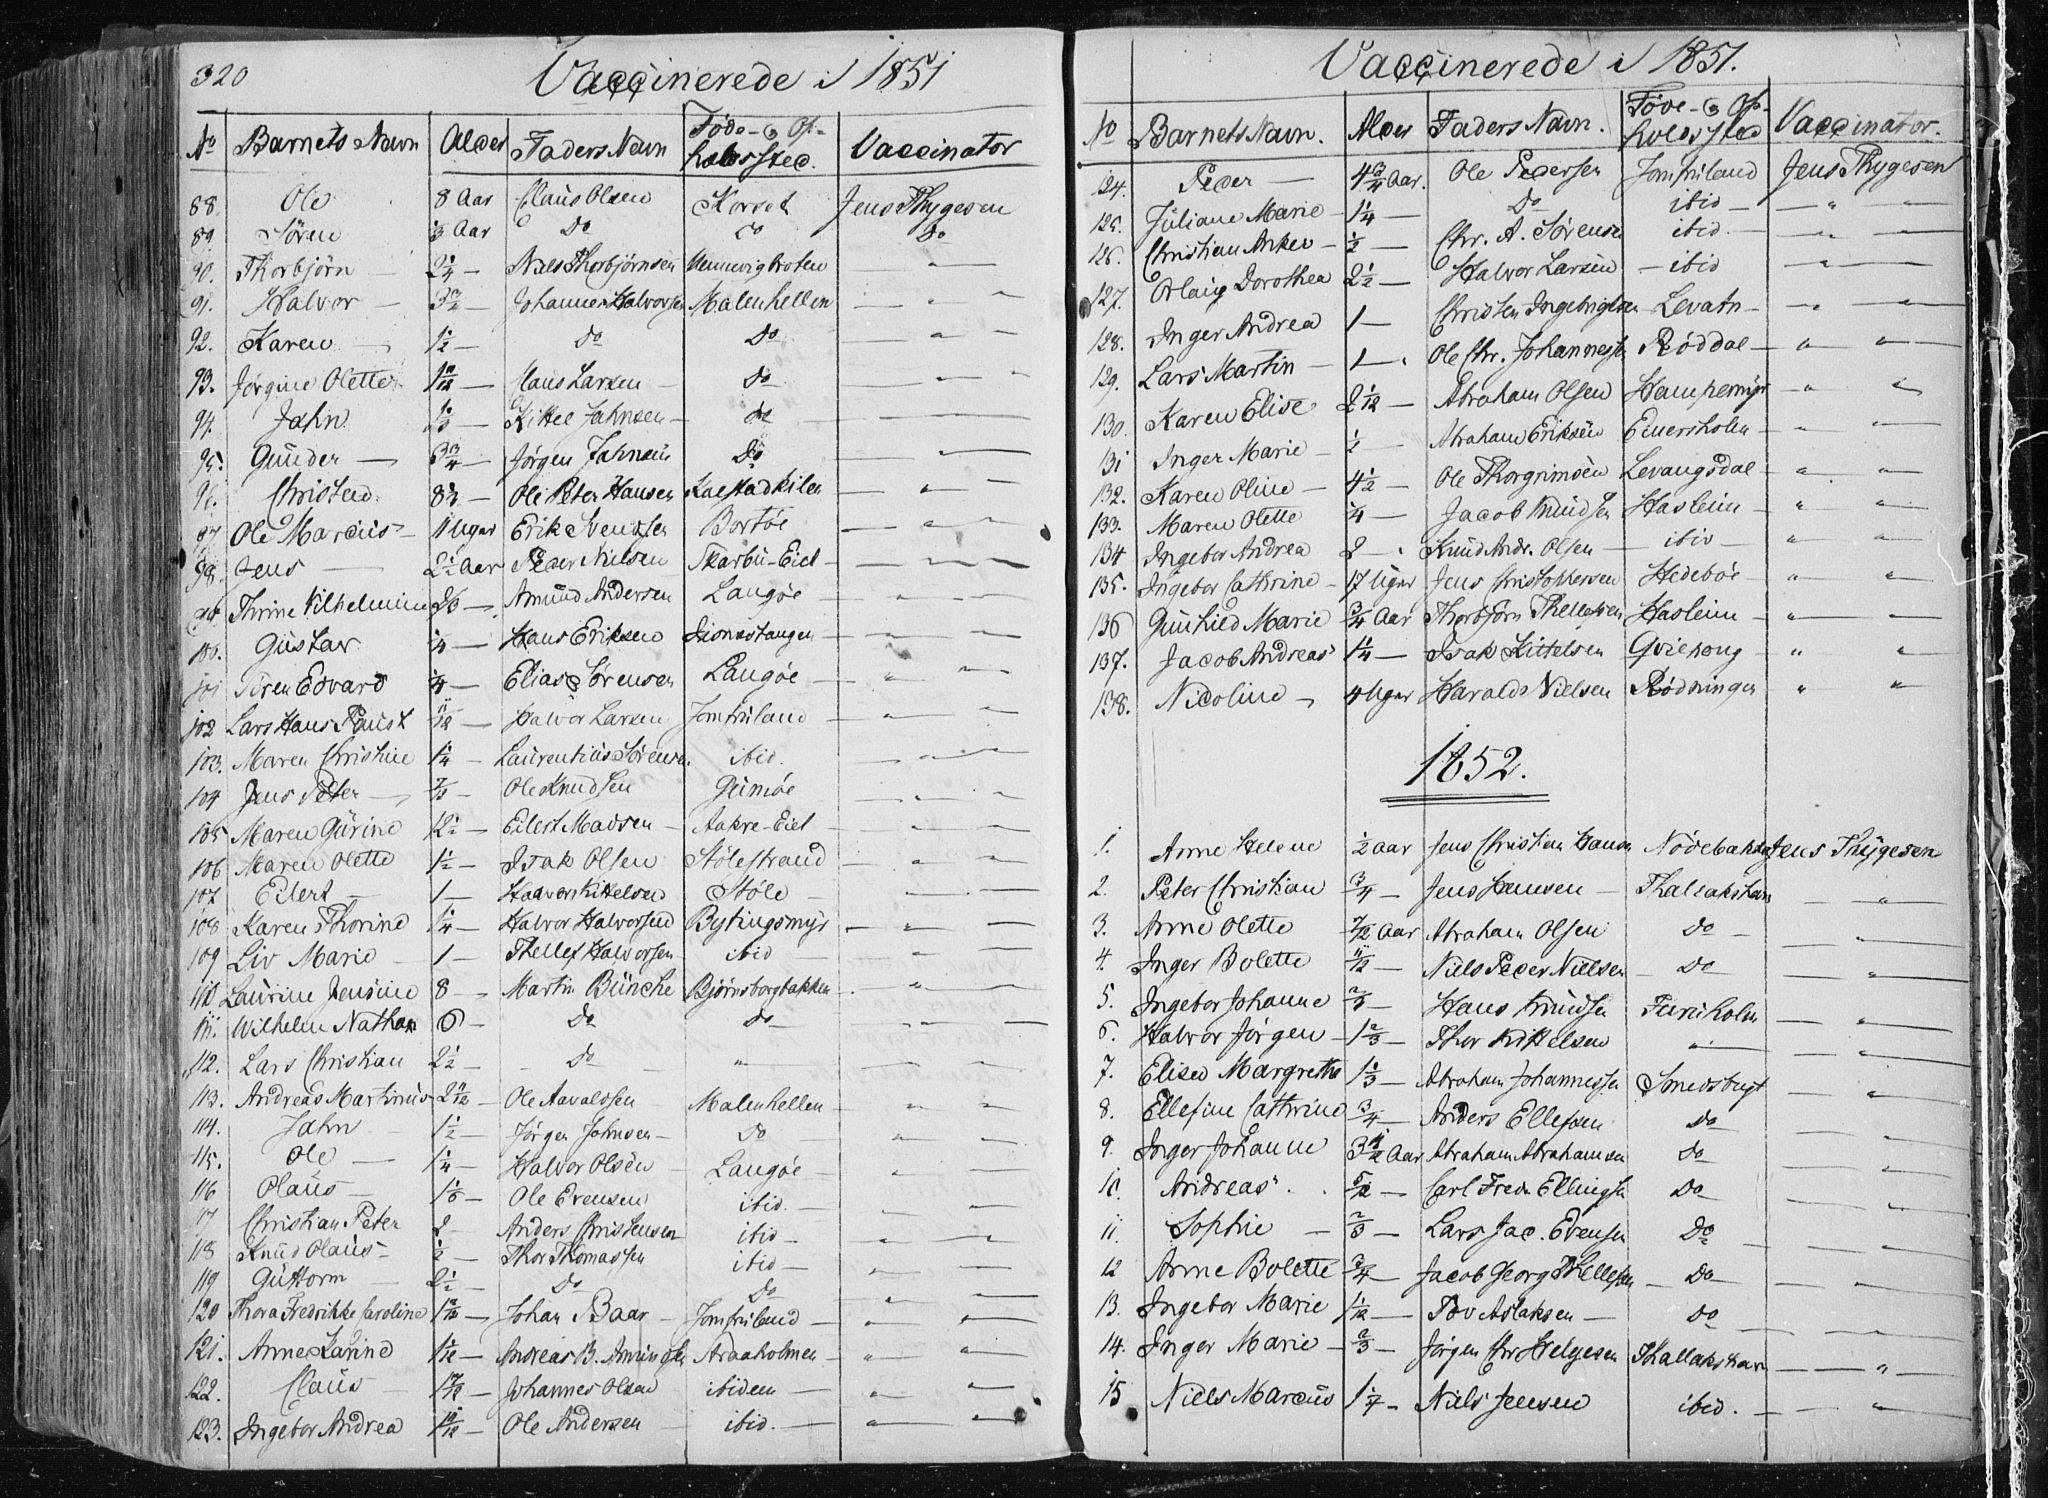 320
Vaccinerede i 1851
No Barnets Navn Alder Faders Navn Føde- & Op-holdssted. Vaccinator
88. Ole 8 Aar Claus Olsen Korset Jens Thygesen
89. Søren 3 Aar Do Do Do
90. Thorbjörn — 2 1/4 — Niels Thorbjørnsen — — —
91. Halvor — 3 1/2 — Johannes Halvorsen Malenhellen — — —
92. Karen — 1/2 — Do Do — — —
93. Jørgine Olette 1 10/12 — Claus Larsen — Do — — —
94. Jahn 1/3 — Kittel Jahnsen — do
95. Gunder — 3 3/4 — Jørgen Jahnsen Do — — —
96. Christend. Ole Peter Hansen Kalstadkilen — — —
97 Ole Marcus — 11 Uger Erik Svendsen Bortøe — — —
98. Jens — 2 1/2 Aar Peder Nielsen Skarbu-Eiet — — —
99. Thrine Vilhelmine Amund Andersen Langøe — — —
100. Gustav 1/4 — Hans Eriksen — — —
101 Søren Edvard 1/4 — Elias Sørensen Langøe — — —
102 Lars Hans 11/12 — Halvor Larsen Jomfruland — — —
103. Maren Christine 1 1/4 — Laurentius Sørensen. ibid. — — —
104 Jens Peter — Ole Knudsen Gumøe — — —
105 Maren Gurine 12 1/2 — Eilert Madsen — Aakre-Eiet — — —
106 Maren Olette 1 1/2 — Isak Olsen Stølestrand — — —
107 Eilert — 1 — Halvor Kittelsen Støle — — —
108 Karen Thorine 1 1/4 — Halvor Halvorsen Bytingsmyr — — —
109 Liv Marie — 1 — Thellef Halvorsen ibid — — —
110 Laurine Jensine 8 — Martin Bünche Bjørnsborgbakken — — —
111. Wilhelm Nathan 6 — Do Do — — —
112. Lars Christian 2 1/2 — Do " — — —
113. Andreas Martinus — Ole Aavaldsen Malenhellen — — —
114. Jahn — 1 1/2 — Jørgen Jahnsen — Do — — —
115. Ole — 1 1/4 — Halvor Olsen — Langøe — — —
116 Olaus — Ole Evensen ibid. — — —
117 Christian Peter 2 — Anders Christensen ibid — — —
118 Knud Olaus — 1/2 — Thor Thomassen ibid — — —
119 Guttorm — 2 1/2 — Do Do — — —
120 Thora Fredrikke Caroline — Johan Baar — Jomfruland — — —
121. Anne Karine 1 1/12 — Andreas B. Araaholmen — — —
122. Claus — — Johannes Olsen ibidem — — —
123. Ingebor Andrea 10/12 — Ole Andersen — ibid. — — —
Vaccinerede i 1851.
No Barnets Navn. Alder Faders Navn. Føde- & Op-holdssted Vaccinator.
124. Peder — 4 3/4 Aar. Ole Pedersen Jomfruland Jens Thygesen
125. Juliane Marie — 1 1/4 — Do ibid — — " —
126. Christian Anker — 1/2 — Chr. A. Sørensen ibid. — — " —
127. Dorothea 2 1/2 — Halvor Larsen — ibid — " —
128. Inger Andrea 1 — Christen Ingebrigtsen Levatn — — " —
129. Lars Martin — 1 — Ole Chr. Johannessen Røddal — " "
130. Karen Elise 2 1/12 — Abraham Olsen Hampemyr " "
131 Inger Marie — 1/2 — Abraham Eriksen Einersholm — " —
132. Karen Oline — 4 1/2 — Ole Thorgrimsen Levangsdal — " —
133. Maren Olette 1/4 — Jacob Knudsen Hasleim — " "
134 Ingebor Andrea 2 — Knud Andr. Olsen — ibid — " —
135. Ingebor Cathrine — 17 Uger Jens Christophersen Hedebøe — " "
136 Gunhild Marie 3/4 Aar Thorbjørn Thellefsen Hasleim — " —
137. Jacob Andreas 1 1/4 — Isak Kittelsen — " "
138. Nicoline — 4 Uger Harald Nielsen Rødningen " "
1852.
1. Anne Helene 1/2 aar Jens Christian Hansen Jens Thygesen
2. Peter Christian 3/4 — Jens Hansen — — " —
3. Anne Olette 7/12 Aar Abraham Olsen Do — " —
4. Inger Bolette 11/12 — Niels Peder Nielsen — Do — " —
5. Ingebor Johanne 2/3 — Hans Knudsen Furuholm — " —
6. Halvor Jørgen — 1 2/3 — Thor Kittelsen " — " —
7. Elise Margrethe 1 1/3 — Abraham Johannessen Smedsbugt — —
8. Ellefine Cathrine 3/4 — Anders Ellefsen Do — —
9. Inger Johanne Aar Abraham Abrahamsen Do — —
10. Andreas . . 5/12 — Carl Fredr. Ellingsen Do — —
11. Sophie — 2/3 — Lars Jac. Evensen Do — —
12 Anne Bolette 3/4 — Jacob Georg Thellefsen — Do — —
13. Ingebor Marie 1 1/12 — Tov Aslaksen — Do — —
14. Inger Marie — 2/3 — Jørgen Chr Helgesen Thallakshavn — " —
15 Niels Marcus 1 1/4 — Niels Jensen ibid. — — " —